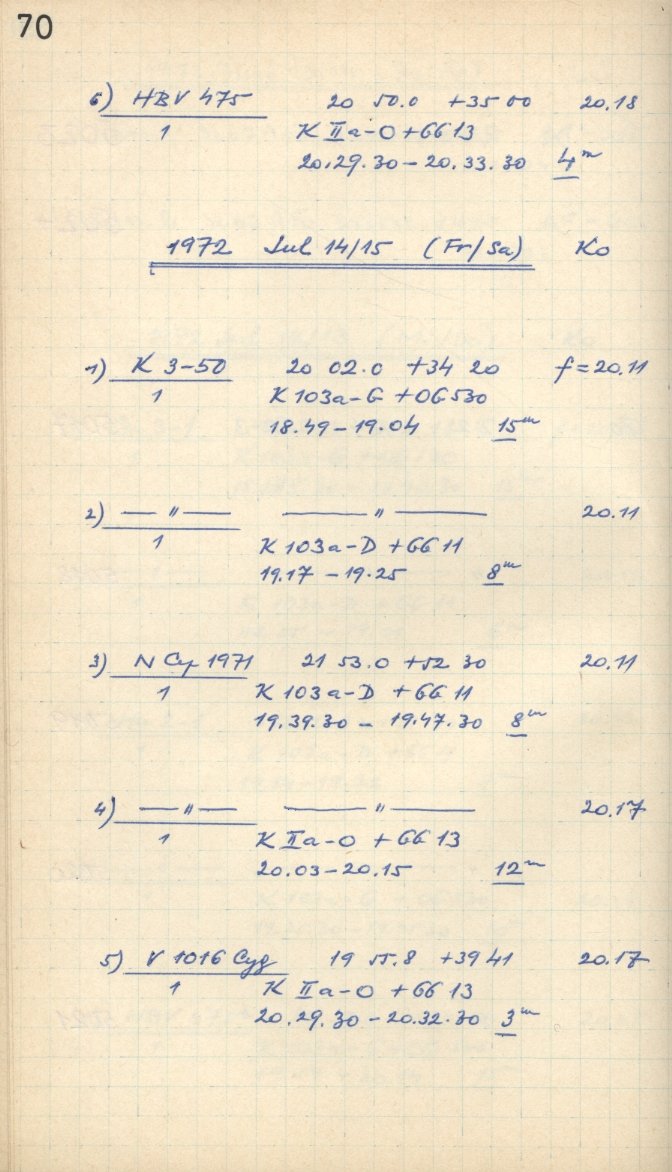 70
6) HBV 475 20 50.0 +35 00 20.18
1 K IIa-O + GG 13
20.29.30 - 20.33.30 4m
1972 Jul 14/15 (Fr/Sa) Ko
1) K 3-50 20 02.0 +34 20 f = 20.11
1 K 103a-G + OG 530
18.49 - 19.04 15m
2) — " — — " — 20.11
1 K 103a-D + GG 11
19.17 - 19.25 8m
3) N Cyg 1971 21 53.0 +52 30 20.11
1 K 103a-D + GG 11
19.39.30 - 19.47.30 8m
4) — " — — " — 20.17
1 K IIa-O + GG 13
20.03 - 20.15 12m
5) V 1016 Cyg 19 55.8 +39 41 20.17
1 K IIa-O + GG 13
20.29.30 - 20.32.30 3m